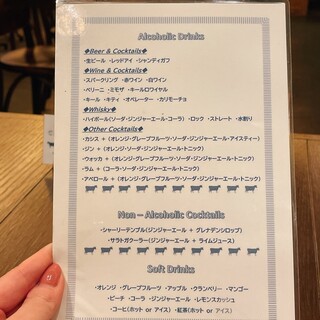 Alcoholic Drinks
◆Beer & Cocktails◆
・生ビール ・レッドアイ ・シャンディガフ
◆Wine & Cocktails◆
・スパークリング ・赤ワイン ・白ワイン
・ベリーニ ・ミモザ ・キールロワイヤル
・キール ・キティ ・オペレーター ・カリモーチョ
◆Whisky◆
・ハイボール(ソーダ・ジンジャーエール・コーラ) ・ロック ・ストレート ・水割り
◆Other Cocktails◆
・カシス + (オレンジ・グレープフルーツ・ソーダ・ジンジャーエール・アイスティー)
・ジン + (オレンジ・グレープフルーツ・ソーダ・ジンジャーエール・トニック)
・ウォッカ + (オレンジ・グレープフルーツ・ソーダ・ジンジャーエール・トニック)
・ラム + (コーラ・ソーダ・ジンジャーエール・トニック)
・アペロール + (オレンジ・グレープフルーツ・ソーダ・ジンジャーエール・トニック)
Non-Alcoholic Cocktails
・シャーリーテンプル(ジンジャーエール + グレナデンシロップ)
・サラトガクーラー(ジンジャーエール + ライムジュース)
Soft Drinks
・オレンジ ・グレープフルーツ ・アップル ・クランベリー ・マンゴー
・ピーチ ・コーラ ・ジンジャーエール ・レモンスカッシュ
・コーヒー(ホット or アイス) ・紅茶(ホット or アイス)